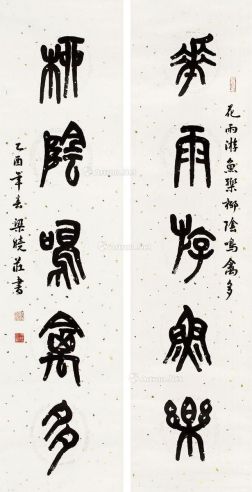 花雨游魚樂
柳陰鳴禽多
花雨游魚樂柳陰鳴禽多
乙酉年春梁曉莊書